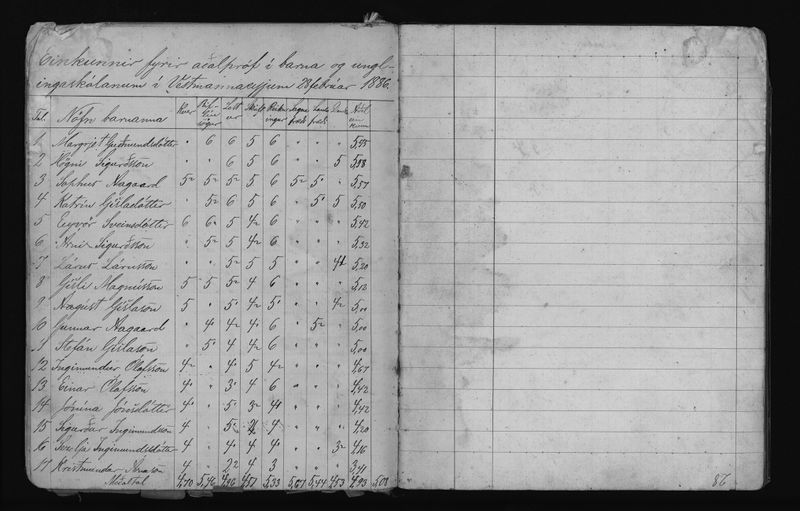 Einkunnir fyrir aðalpróf í barna og ungl-
ingaskólanum í Vestmannaeyjum 28 febrúar 1886.
Tal. Nöfn barnanna Kver Bifl-íusögur Lestur Skrift Reikningur Danska Aðaleinkunn
1 Margrjet Guðmundsdóttir " 6 6 5 6 " " "
2 Högni Sigurðsson " " 6 5 6 " " 5
3 Sophus Aagaard 5
4 Katrín Gísladóttir 6 5 6 " 5 5,50
5 Eyvör Sveinsdóttir 6 6 5 4 6 " " " 5,42
6 Árni Sigurðsson " 5 5 4 6 " " " 5,32
7 Lárus Lárusson " " 5 5 5 " " 5,20
8 Gísli Magnússon 5 5 5 4 6 " " "
9 Ágúst Gíslason 5 " 5 4 5 " " 4 5,00
10 Gunnar Aagaard " 4 4 4 6 " 5 " 5,00
11 Stefán Gíslason " 5 4 4 6 " " " 5,00
12 Ingimundur Ólafsson 4 " 4 5 4 " " " 4,67
13 Einar Ólafsson 4 " 3 4 6 " " " 4,42
14 Jónína Jónsdóttir 4 " 5 3 4 " " " 4,42
15 Sigurður Ingimundsson 4 " 5 4 " " " 4,20
16 Ingimundsdóttir 4 " 4 4 4 " " 3 4,16
17 Kristmundur Árnason 4 " 4 3 " " " 3,41
Meðaltal 4,70 5,33 5,07 5,44 4,53 4,93
86